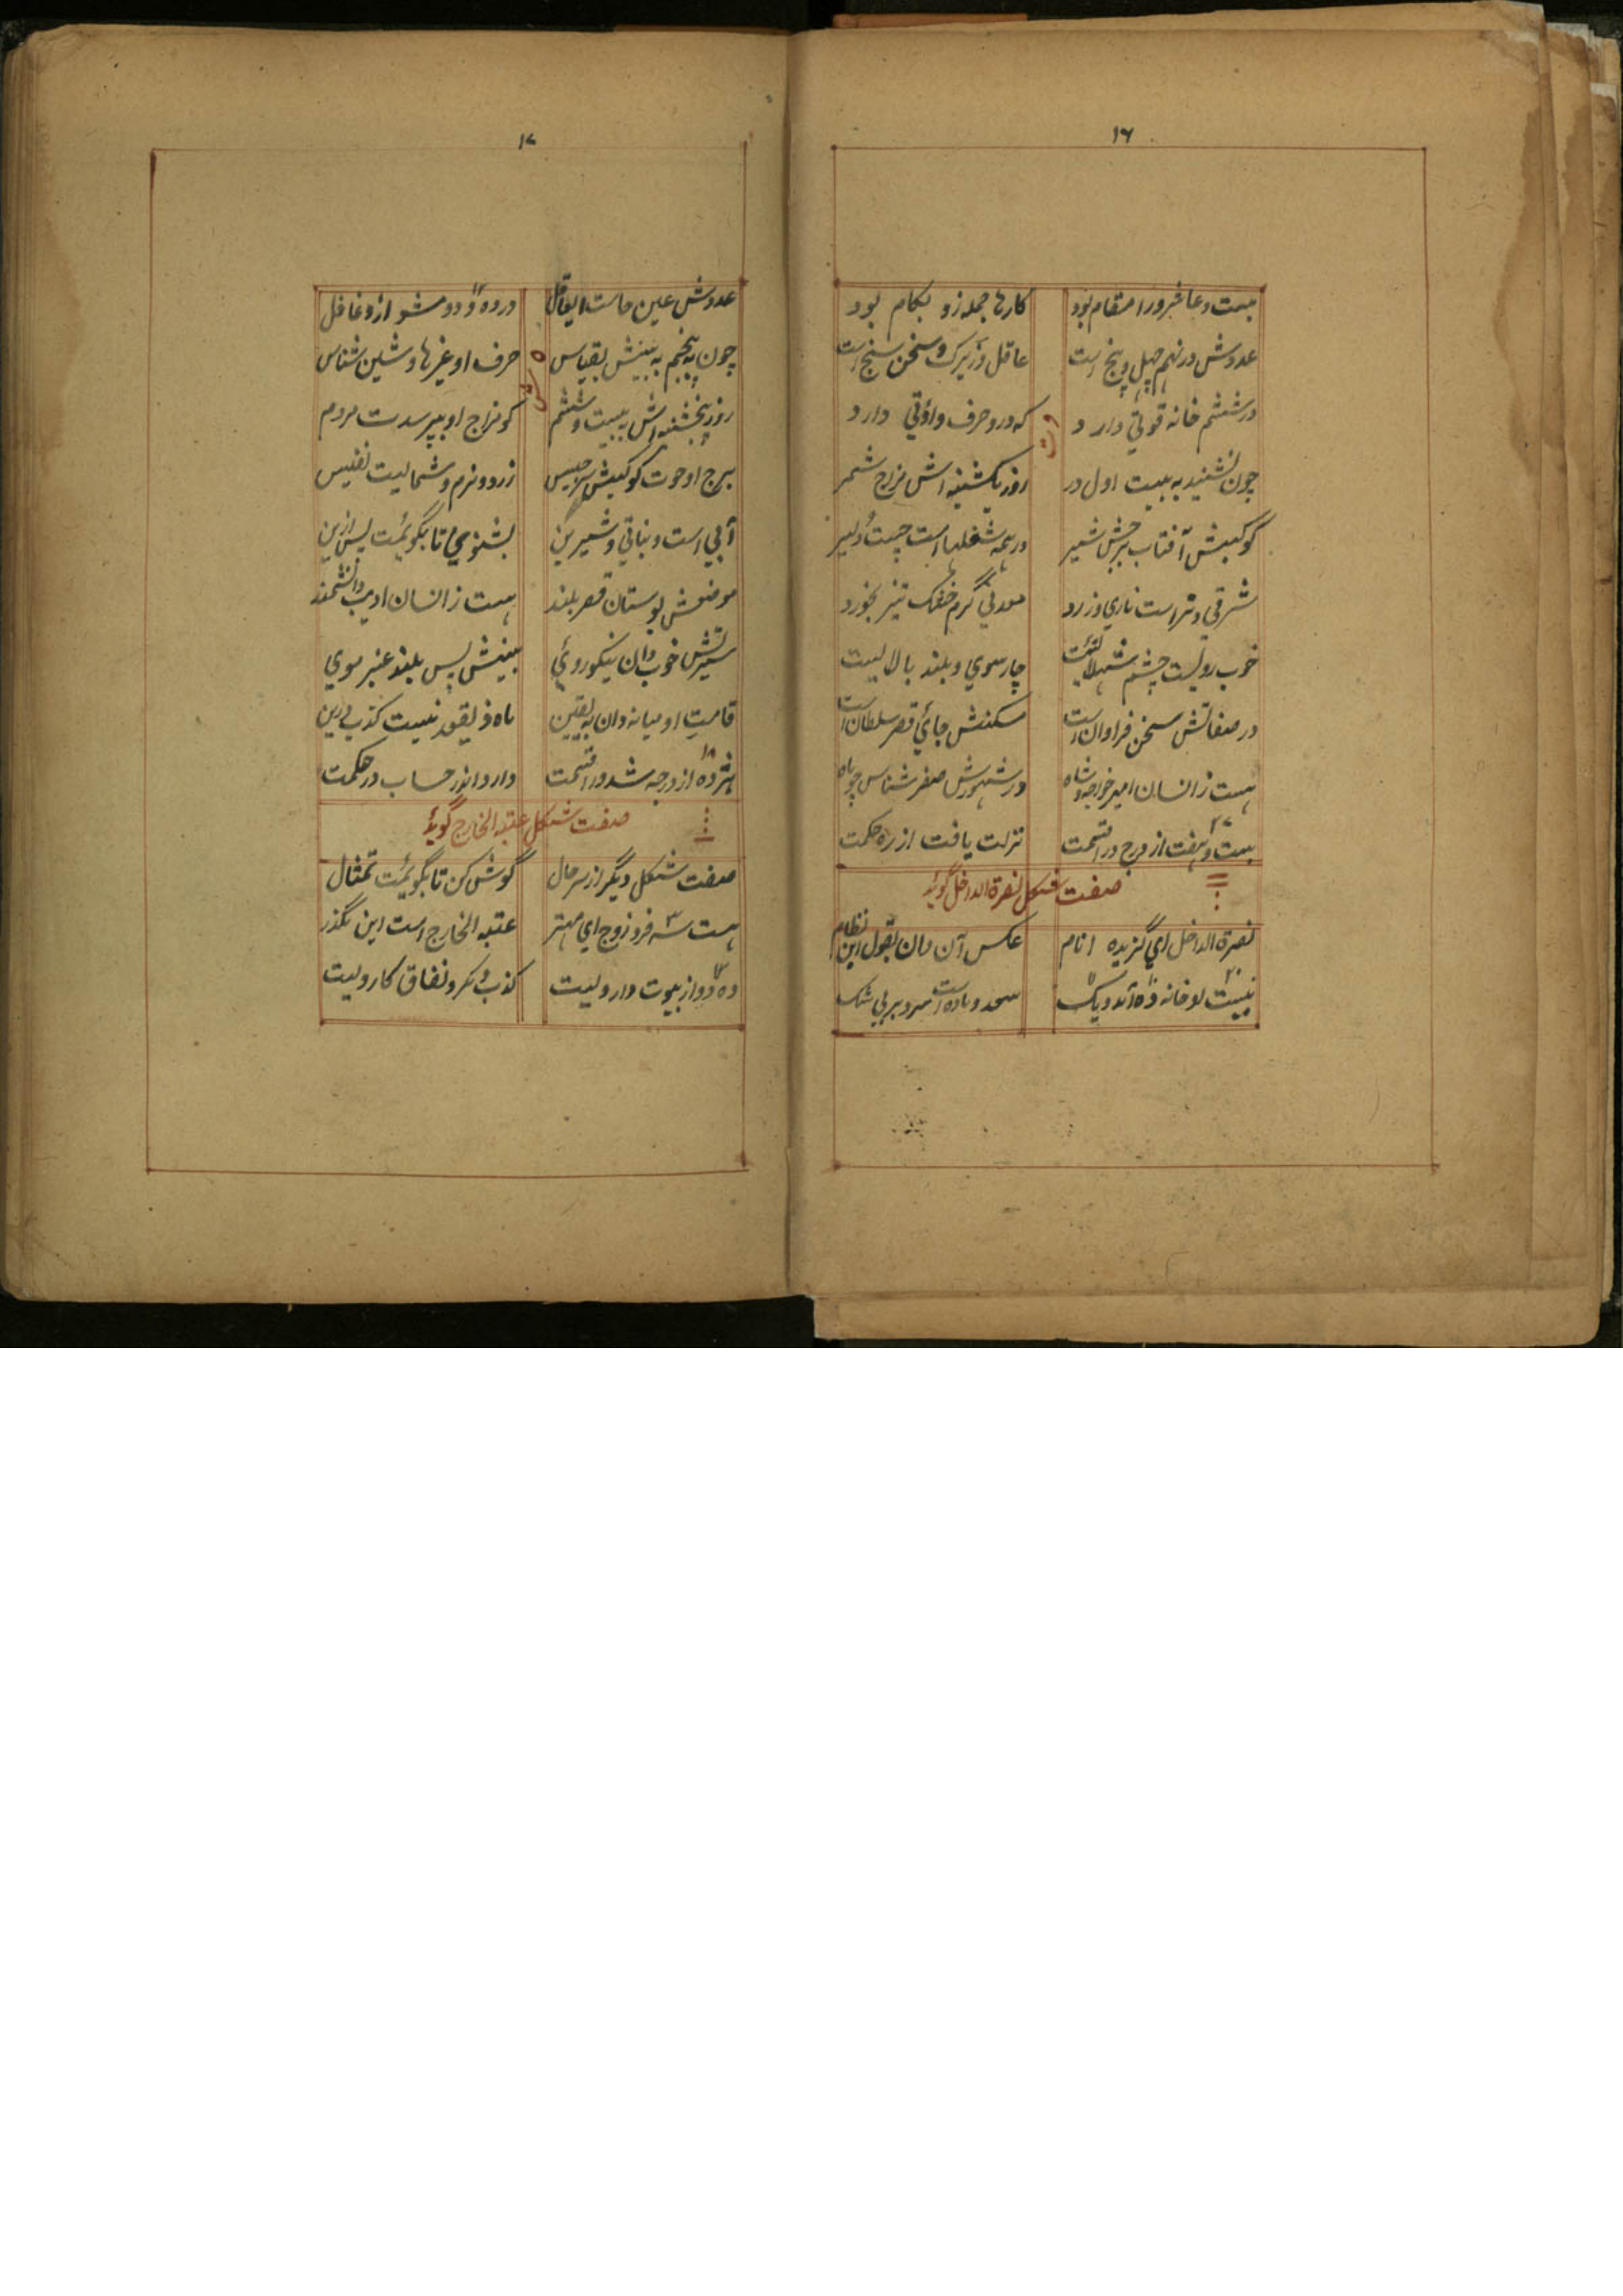 ١٦
بیت و عاشر ورا مقام بود کارها جمله زو بکام بود
عددش در نهم چهل و پنج است عاقل و زیرک و سخن سنج است
در ششم خانه قوتی دارد که درو حرف واؤتی دارد
چون نشیند به بیت اول در روز یکشنبه اش مزاج شمر
کوکبش آفتاب برجش شیر در همه شغلها است چست و دلیر
شرقی و تراست ناری و زرد معدنی گرم خشک تیز بخورد
خوب رویست چشم شهلائیست چارسوی و بلند بالائیست
در صفاتش سخن فراوان است مسکنش جائ قصر سلطان است
هست ز انسان امیر خواجه و شاه در شهورش صفر شناس چو ماه
٢٧
بیست و هفت از درج در قسمت نزلت یافت از ره حکمت
صفت شکل نصرة الداخل گوید
نصرة الداخل ای گزیده انام عکس آن دان بقول این نظام
خانه ده آمد و یک سعد و ماده است سرد بی شک
١٧
عددش عین حاست ایعاقل در ده و دو مشو ازو غافل
چون به پنجم به بینش بقیاس حرف او غیرها و شین شناس
روز پنجشنبه اش به بیت و ششم کو مزاج او بپرسدت مردم
برج او حوت کوکبش برجیس زرد و نرم و شمالیست نفیس
آبی است و نباتی و شیرین بشنوی تا بگویمت پس ازین
موضعش بوستان قصر بلند هست ز انسان ادیب دانشمند
سیرتش خوب دان نیکو روئی بینش پس بلند عنبر موی
قامت او میانه دان به یقین ماه ذیقعد نیست کذب درین
١٨
هژده از درجه شد ورا قسمت دارد اندر حساب در حکمت
صفت شکل عتبة الخارج گوید
صفت شکل دیگر از سر حال گوش کن تا بگویمت تمثال
هست سه فرد زوج ای مهتر عتبة الخارج است این بگذر
ده و دو از بیوت دارویست کذب و مکر و نفاق کارویست